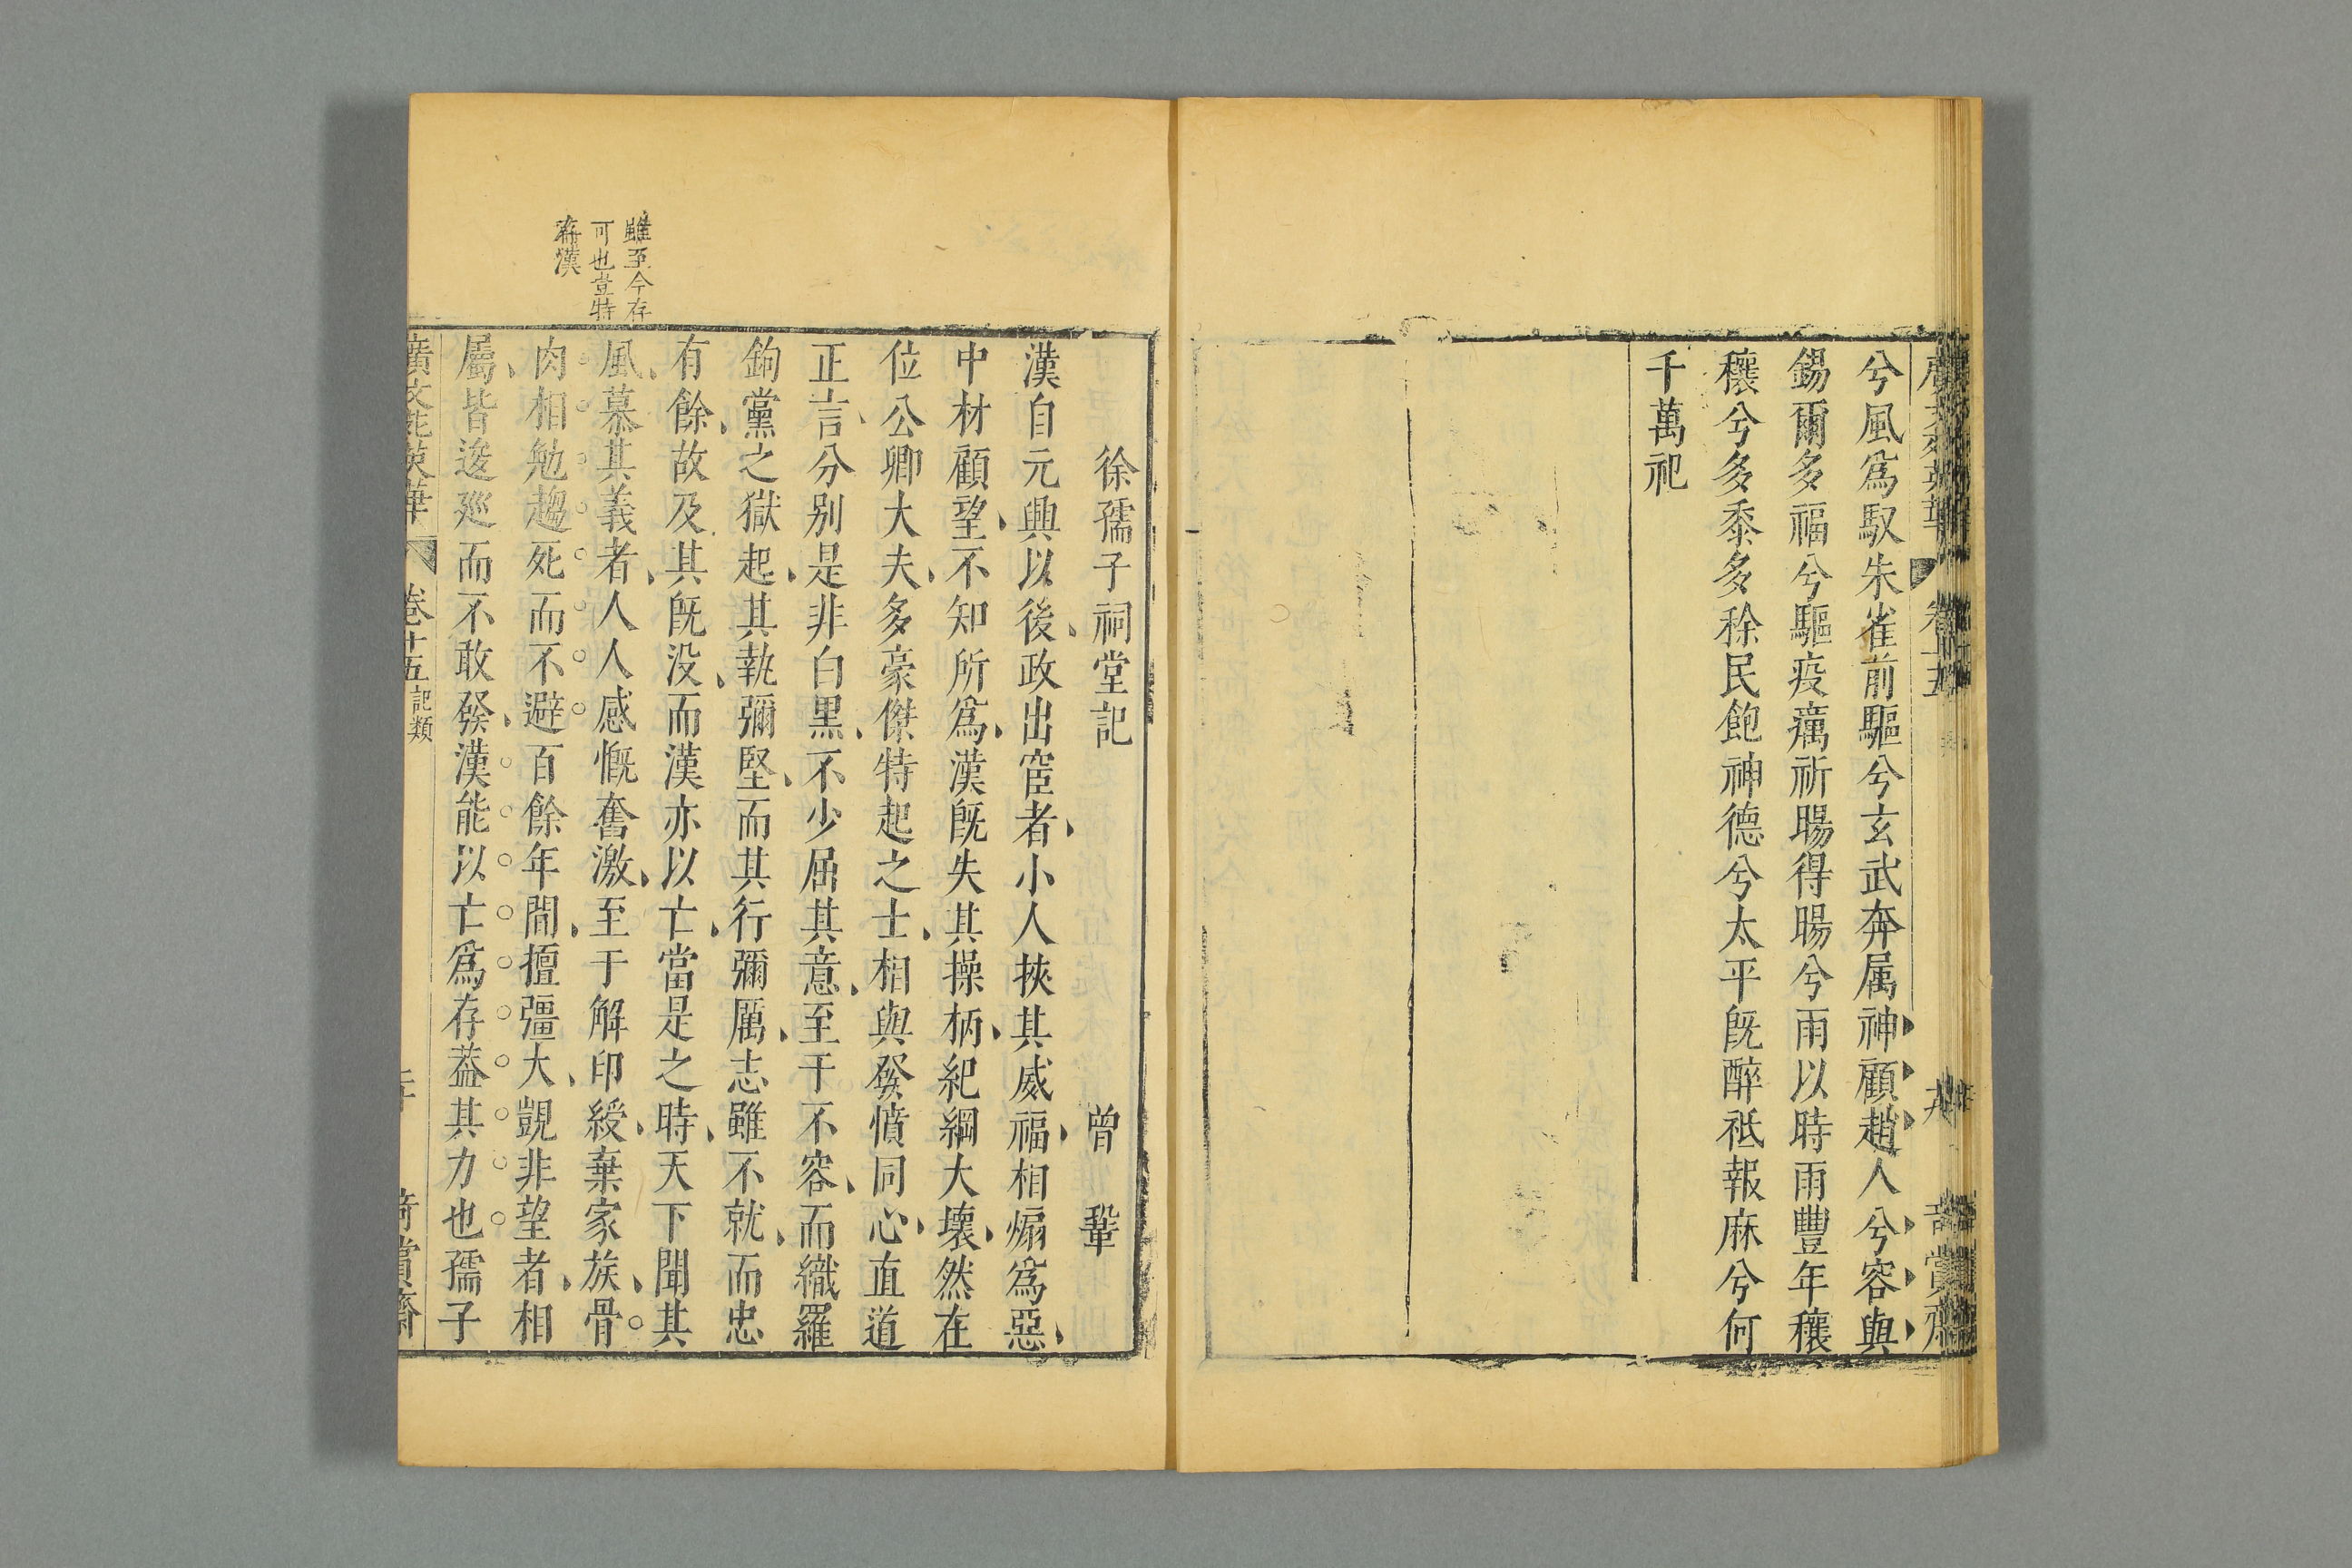 兮風爲馭朱雀前驅兮玄武奔属神顧趙人兮容與
錫爾多福兮驅疫癘祈暘得暘兮雨以時雨豐年穰
穰兮多黍多稌民飽神德兮太平旣醉祗報庥兮何
千萬祀
徐孺子祠堂記 曾 鞏
漢自元興以後政出宦者小人挾其威福相煽爲惡
中材顧望不知所爲漢旣失其操柄紀綱大壞然在
位公卿大夫多豪傑特起之士相與發憤同心直道
正言分别是非白黑不少屈其意至于不容而織羅
鉤黨之獄起其執彌堅而其行彌厲志雖不就而忠
有餘故及其旣没而漢亦以亡當是之時天下聞其
風慕其義者人人感慨奮激至于解印綬棄家族骨
肉相勉趨死而不避百餘年間擅彊大覬非望者相
屬皆逡廵而不敢發漢能以亡爲存葢其力也孺子
雖至今存
可也豈特
存漢
廣文苑英華 卷十五 記類